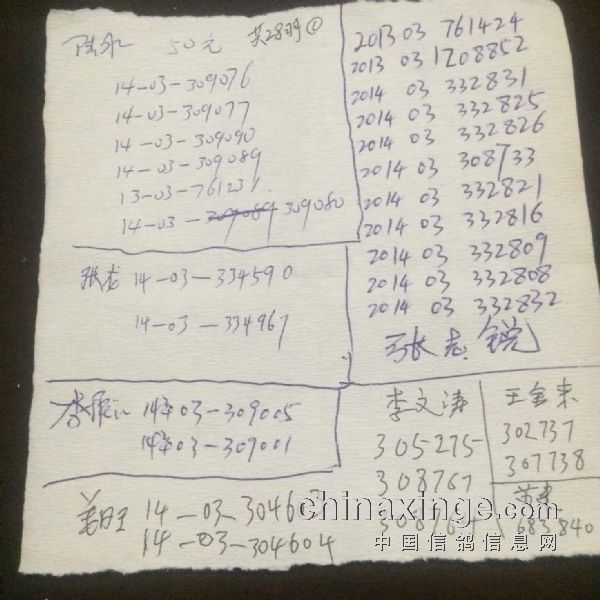 50元 共28羽
14-03-309076
14-03-309077
14-03-309090
14-03-309089
13-03-761231.
14-03-309080
张志 14-03-334590
14-03-334967
14年03-309005
14年03-307001
姜旺 14-03-30460
14-03-304604
2013 03 761424
2013 03 1208852
2014 03 332831
2014 03 332825
2014 03 332826
2014 03 308733
2014 03 332821
2014 03 332816
2014 03 332809
2014 03 332808
2014 03 332832
张志锐
李文涛
305275
308767
王金来
302737
307738
683840
chinaxinge.com
中国信鸽信息网